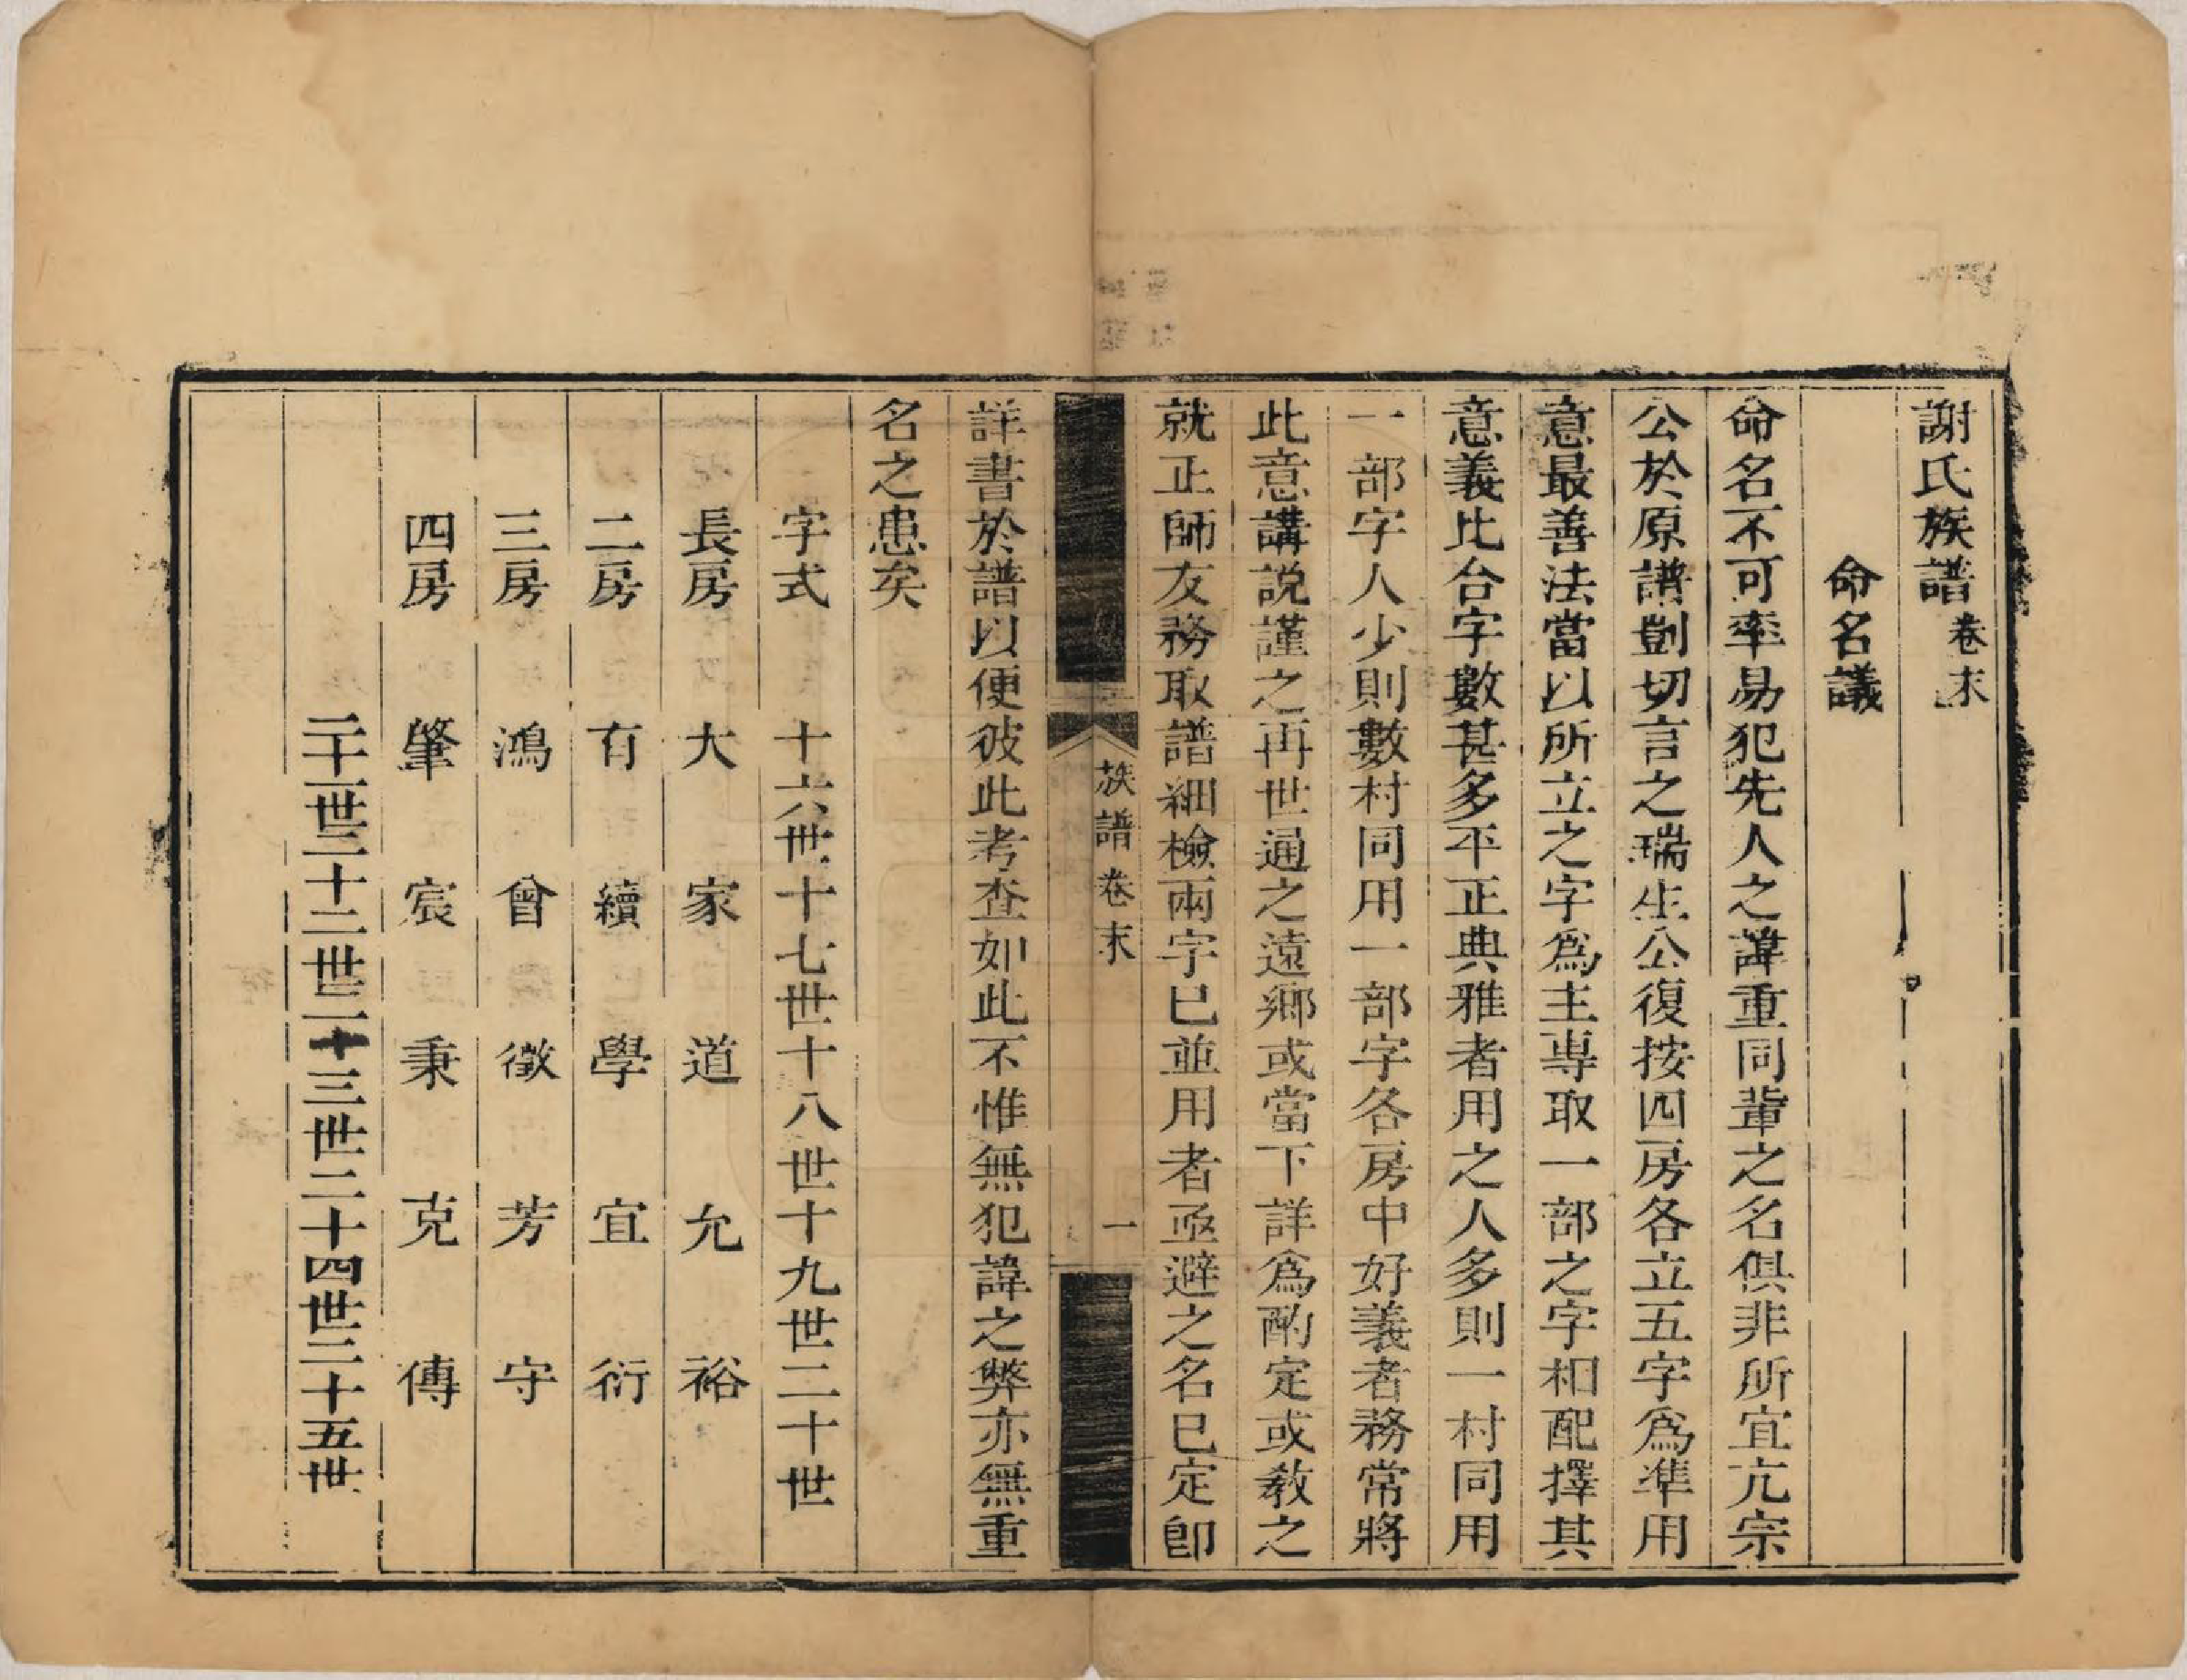 謝氏族譜卷末
命名議
命名不可率易犯先人之諱重同輩之名俱非所宜亢宗
公於原譜剴切言之瑞生公復按四房各立五字爲準用
意最善法當以所立之字爲主專取一部之字相配擇其
意義比台字數甚多平正典雅者用之人多則一村同用
一部字人少則數村同用一部字各房中好義者務常將
此意講説謹之再世通之遠鄉或當下詳爲酌定或教之
就正師友務取譜細檢兩字已並用者亟避之名已定卽
族譜卷末 一
詳書於譜以便彼此考查如此不惟無犯諱之弊亦無重
名之患矣
字式 十六世十七世十八世十九世二十世
長房 大 家 道 允 裕
二房 有 續 學 宜 衍
三房 鴻 會 徵 芳 守
四房 肇 宸 秉 克 傳
二十一世二十二世二十三世二十四世二十五世